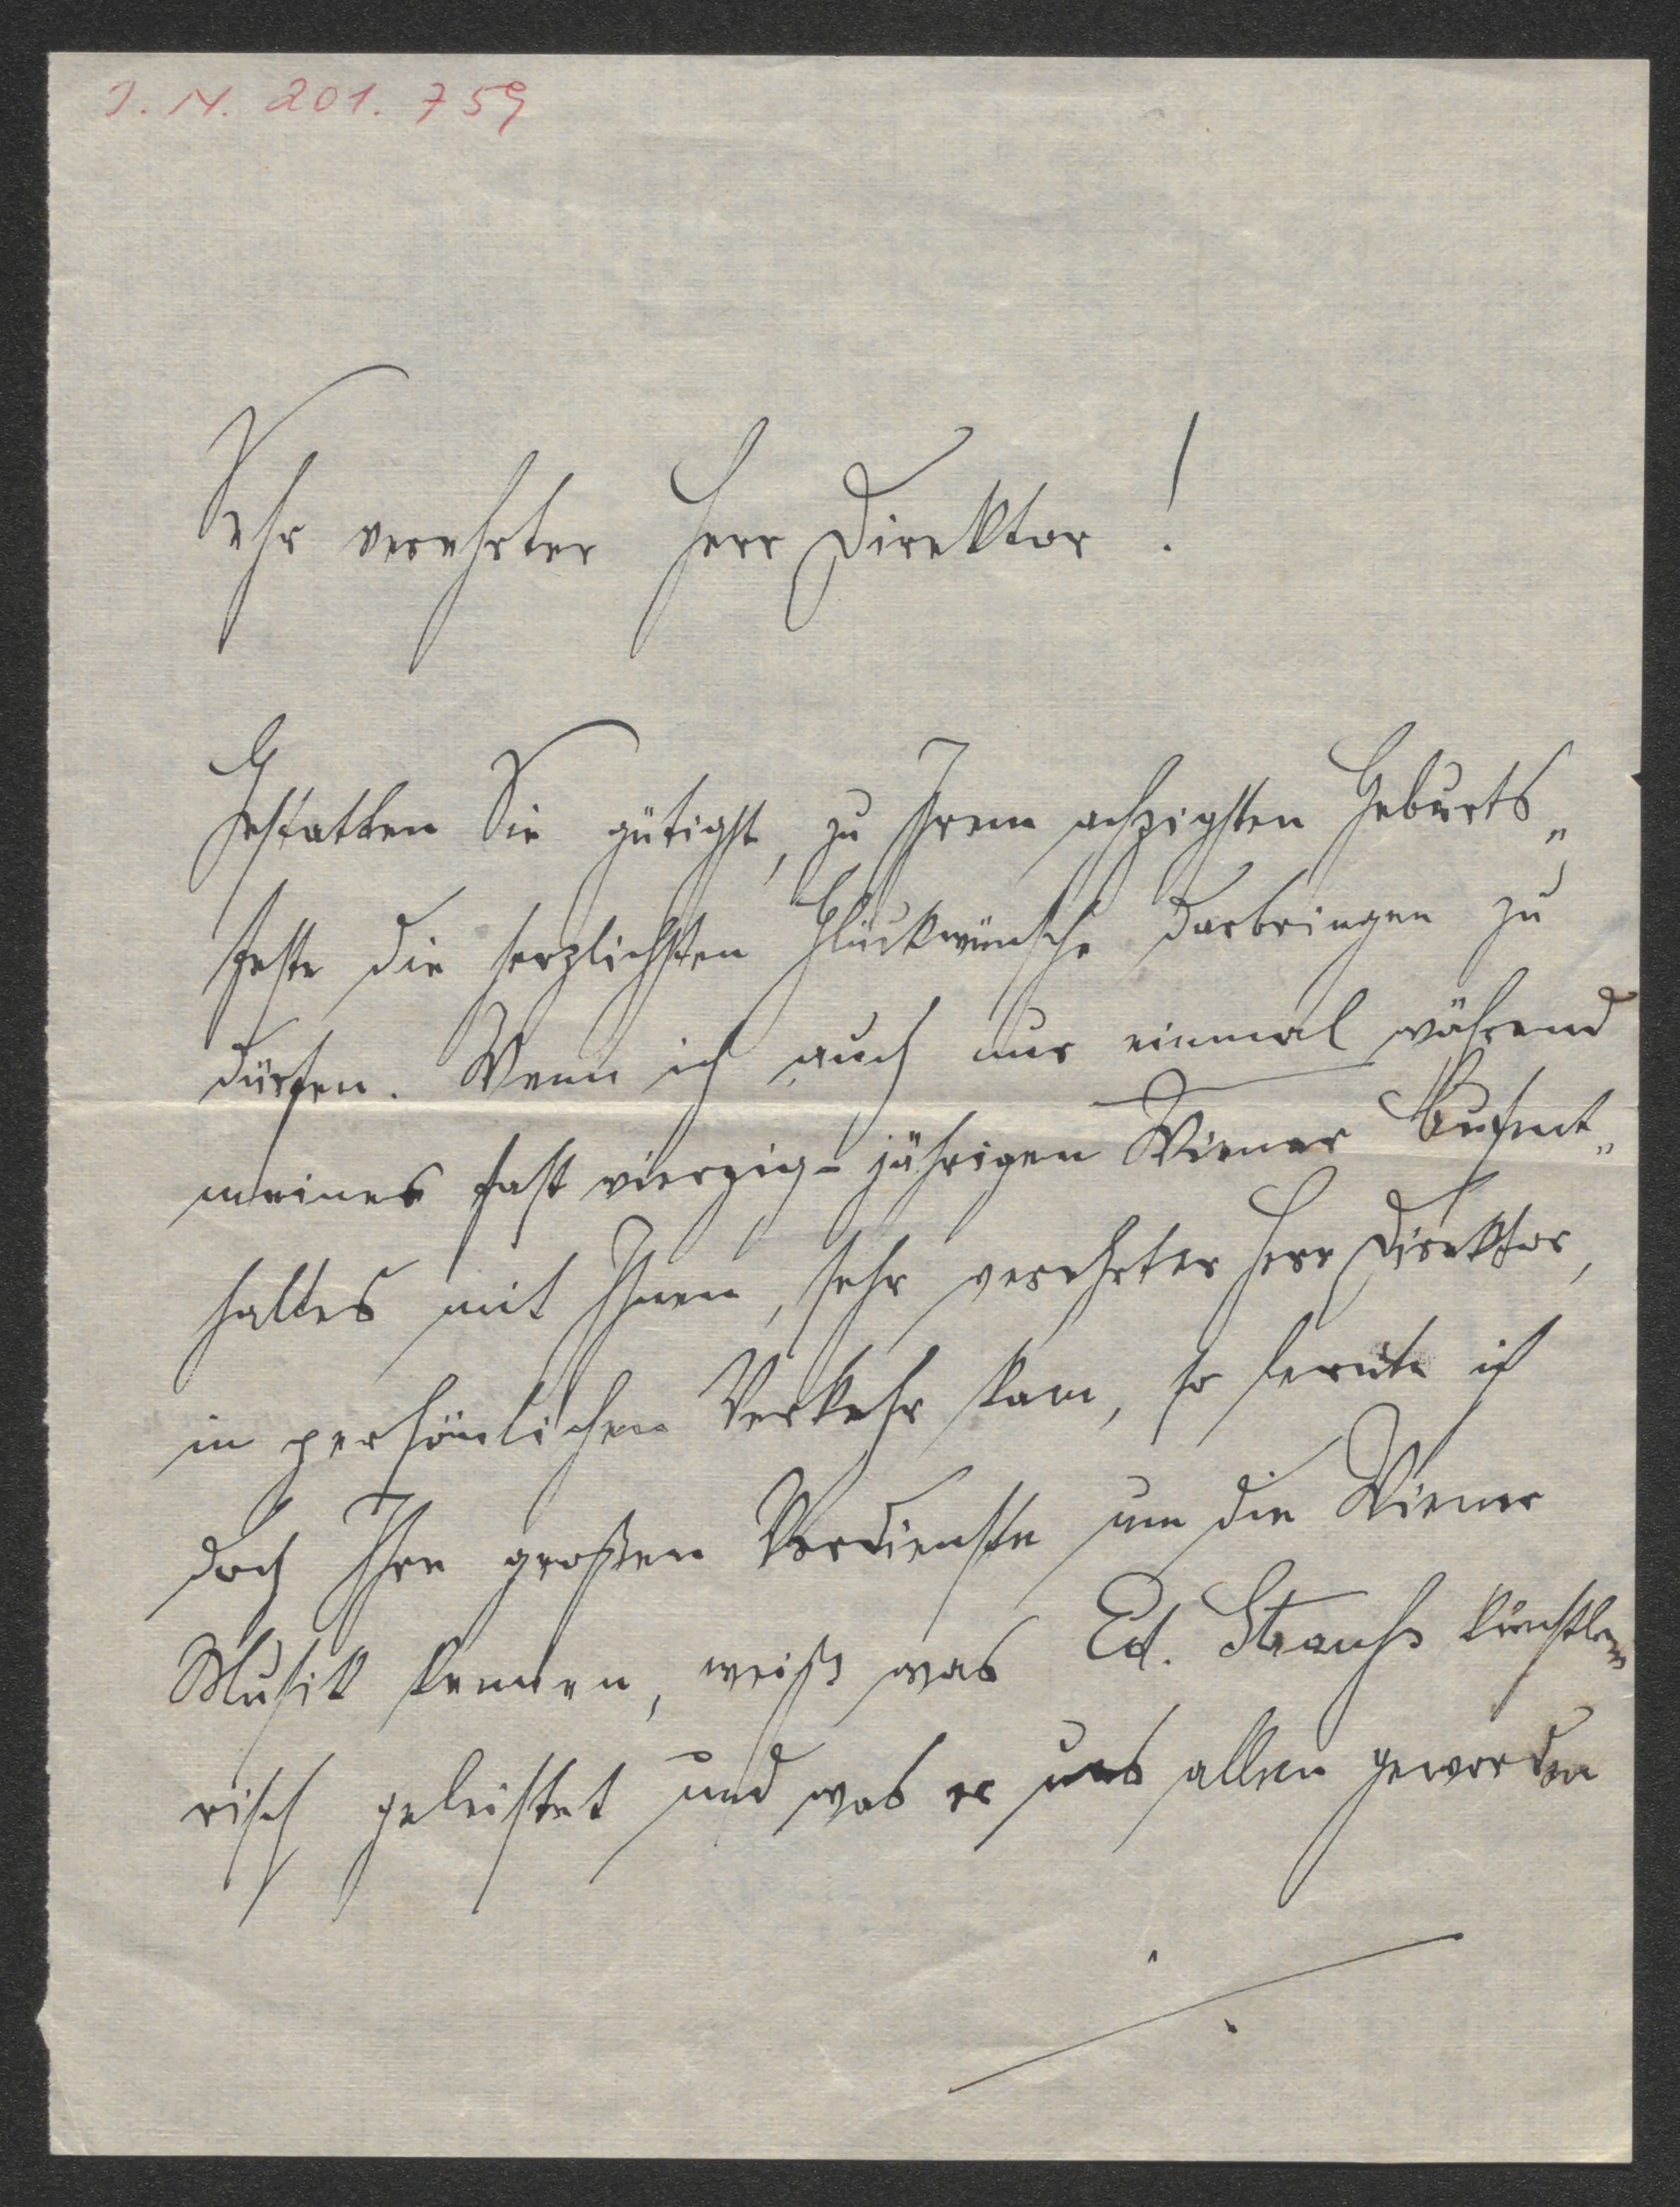 J. N. 201.759
Sehr verehrter Herr Direktor!
Gestatten Sie gütigst, zu Ihrem achzigsten Geburts„
feste die herzlichsten Glückwünsche darbringen zu
dürfen. Wenn ich auch nur einmal während
meines fast vierzig-jährigen Wiener Aufent„
haltes mit Ihnen, sehr verehrter Herr Direktor,
in persönlichen Verkehr kam, so lernte ich
doch Ihre großen Verdienste um die Wiener
Musik kennen, weiß was Ed. Strauß künstle„
risch geleistet und was er uns allen geworden
./.